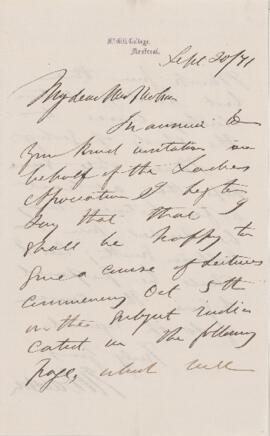 McGill College,
Montreal.
Sept 20/71
My dear Mrs Molson
In answer to
your kind invitation on
behalf of the Ladies
Association I beg to
say that that I
shall be happy to
give a course of lectures
commencing Oct 5th
on the subject indi
cated on the following
page, which will